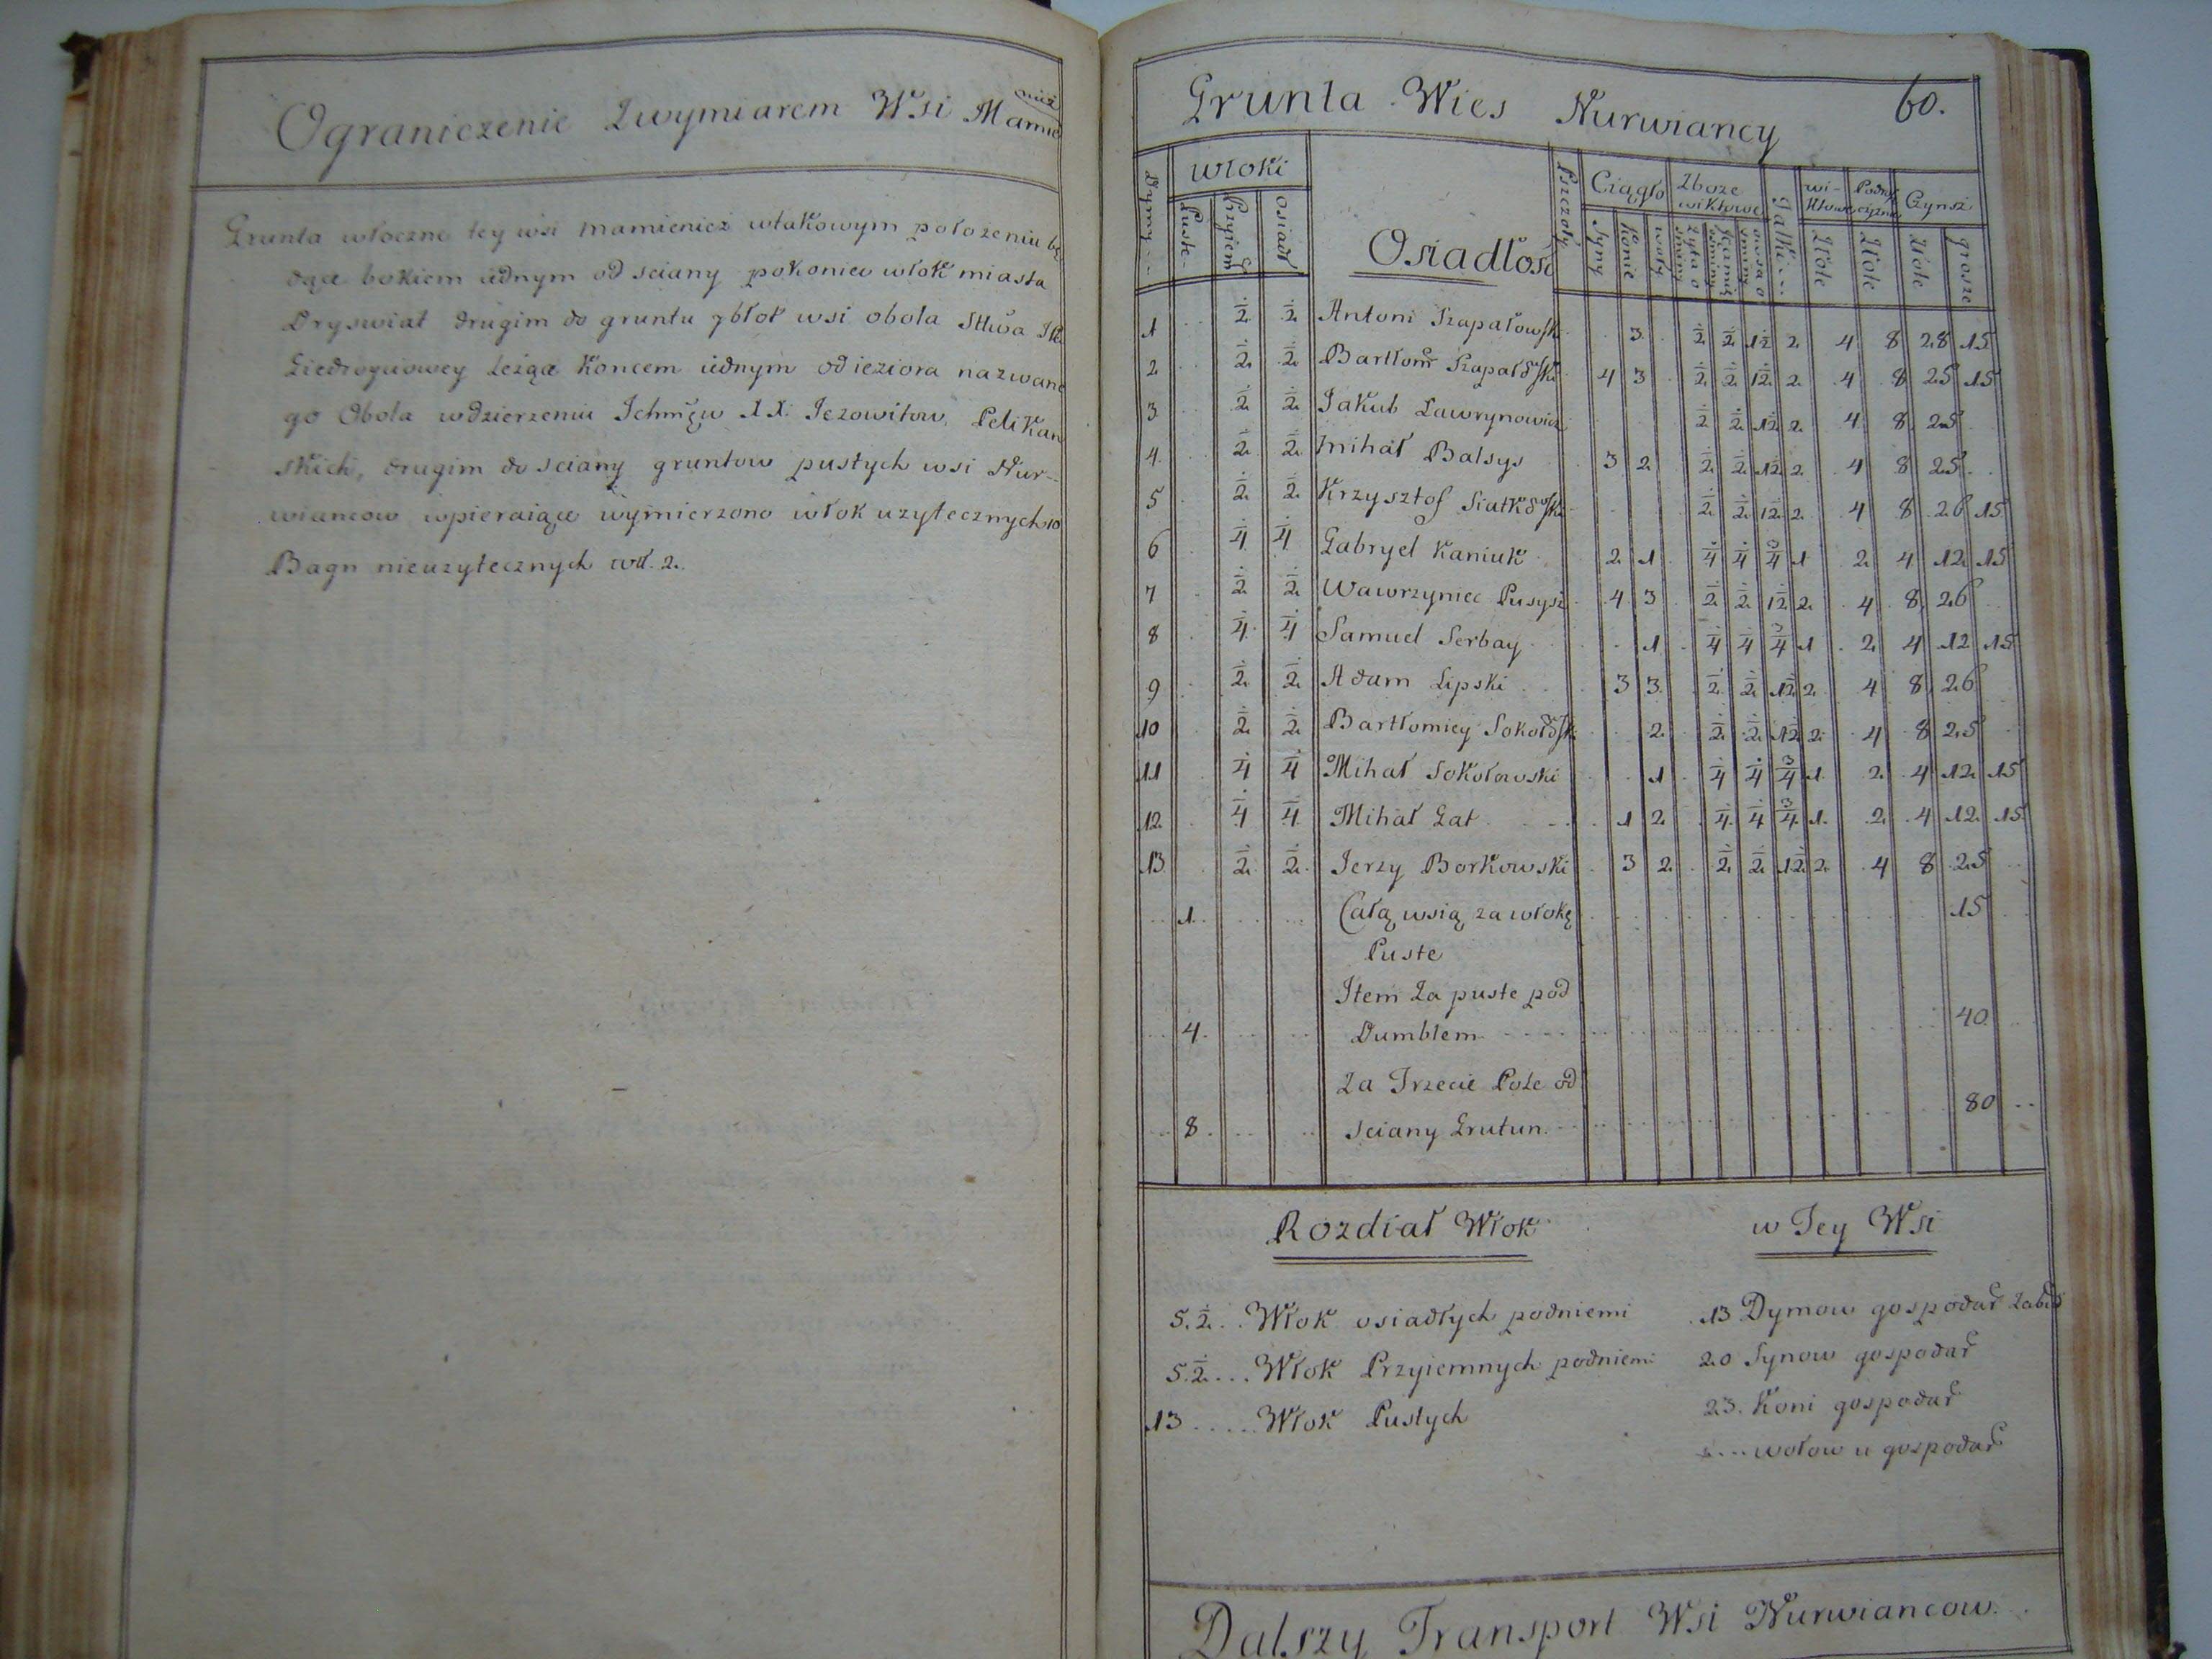 Ograniczenie Zwymiarem Wsi Mamie
nicz
Grunta włoczne tey wsi Mamienicz włakowym położeniu bę
dące bokiem iednym od sciany pokoniec włok miasta
Dryswiat drugim do gruntu y błot wsi obola Sttwa
Giedroyciowey Leżące Koncem iednym od ieziora nazwane
go Obola wdzierzeniu Ichmęw XX. Iezowitow, Pelikan
skich, drugim do sciany gruntow pustych wsi Nur-
wiancow wpieraiące wymierzono włok uzytecznych 10
Bagn nieuzytecznych wł. 2.
Grunta Wies Nurwiancy 60.
włoki Osiadłosc Pszczoły Ciągło Zboze wiktowe Jałki wi- ktowe Czynsz
Puste Przyiem osiadł Syny Konie woły Złote Złote Złote grosze
1 1/2 1/2 Antoni Szapałowsk 3 1/2 1/2 1 1/2 2 4 8 28 15
2 1/2 1/2 Bartłom Szapałowski 4 3 1/2 1/2 1 1/2 2 4 8 25 15
3 1/2 1/2 Jakub Ławrynowicz 1/2 1/2 1 1/2 2 4 8 25
4 1/2 1/2 Mihał Balsys 3 2 1/2 1/2 1 1/2 2 4 8 25
5 1/2 1/2 Krzysztof Siatkowski 1/2 1/2 1 1/2 2 4 8 26 15
6 1/4 1/4 Gabryel Kaniuk 2 1 1/4 1/4 3/4 1 2 4 12 15
7 1/2 1/2 Wawrzyniec Pusysz 4 3 1/2 1/2 1 1/2 2 4 8 26
8 1/4 1/4 Samuel Serbay 1 1/4 1/4 3/4 1 2 4 12 15
9 1/2 1/2 Adam Lipski 3 3 1/2 1/2 1 1/2 2 4 8 26
10 1/2 1/2 Bartłomiey Sokołowsk 2 1/2 1/2 1 1/2 2 4 8 25
11 1/4 1/4 Mihał Sokołowski 1 1/4 1/4 3/4 1 2 4 12 15
12 1/4 1/4 Mihał Gat 1 2 1/4 1/4 3/4 1 2 4 12 15
13 1/2 1/2 Jerzy Borkowski 3 2 1/2 1/2 1 1/2 2 4 8 25
1 Całą wsią za włokę 15
Puste
Item Za puste pod
4 Dumblem 40
Za Trzecie Pole od
8 sciany Grutun 80
Rozdiał Włok w Tey Wsi
5 1/2 Włok osiadłych podniemi
5 1/2 Włok Przyiemnych podniemi
13 Włok Pustych
13 Dymow gospodar
20 Synow gospodar
23. Koni gospodar
wołow u gospodar
Dalszy Transport Wsi Nurwiancow.